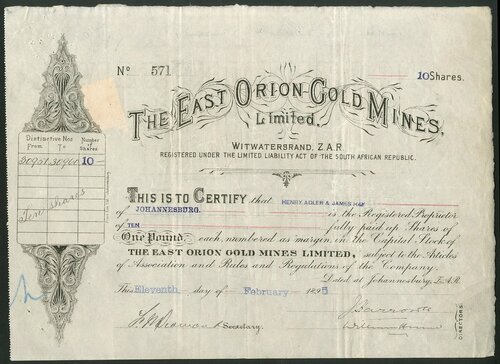 No 571
10 Shares.
THE EAST ORION GOLD MINES,
Limited.
WITWATERSRAND, Z.A.R.
REGISTERED UNDER THE LIMITED LIABILITY ACT OF THE SOUTH AFRICAN REPUBLIC.
Distinctive Nos Number of Shares
From To
10
Ten shares
THIS IS TO CERTIFY that HENRY ADLER & JAMES HAY
of JOHANNESBURG. is the Registered Proprietor
of TEN fully paid up Shares of
One Pound, each, numbered as margin, in the Capital Stock of
THE EAST ORION GOLD MINES LIMITED, subject to the Articles
of Association and Rules and Regulations of the Company.
Dated at Johannesburg, Z.A.R.
This Eleventh day of February 1895
Secretary.
DIRECTORS.